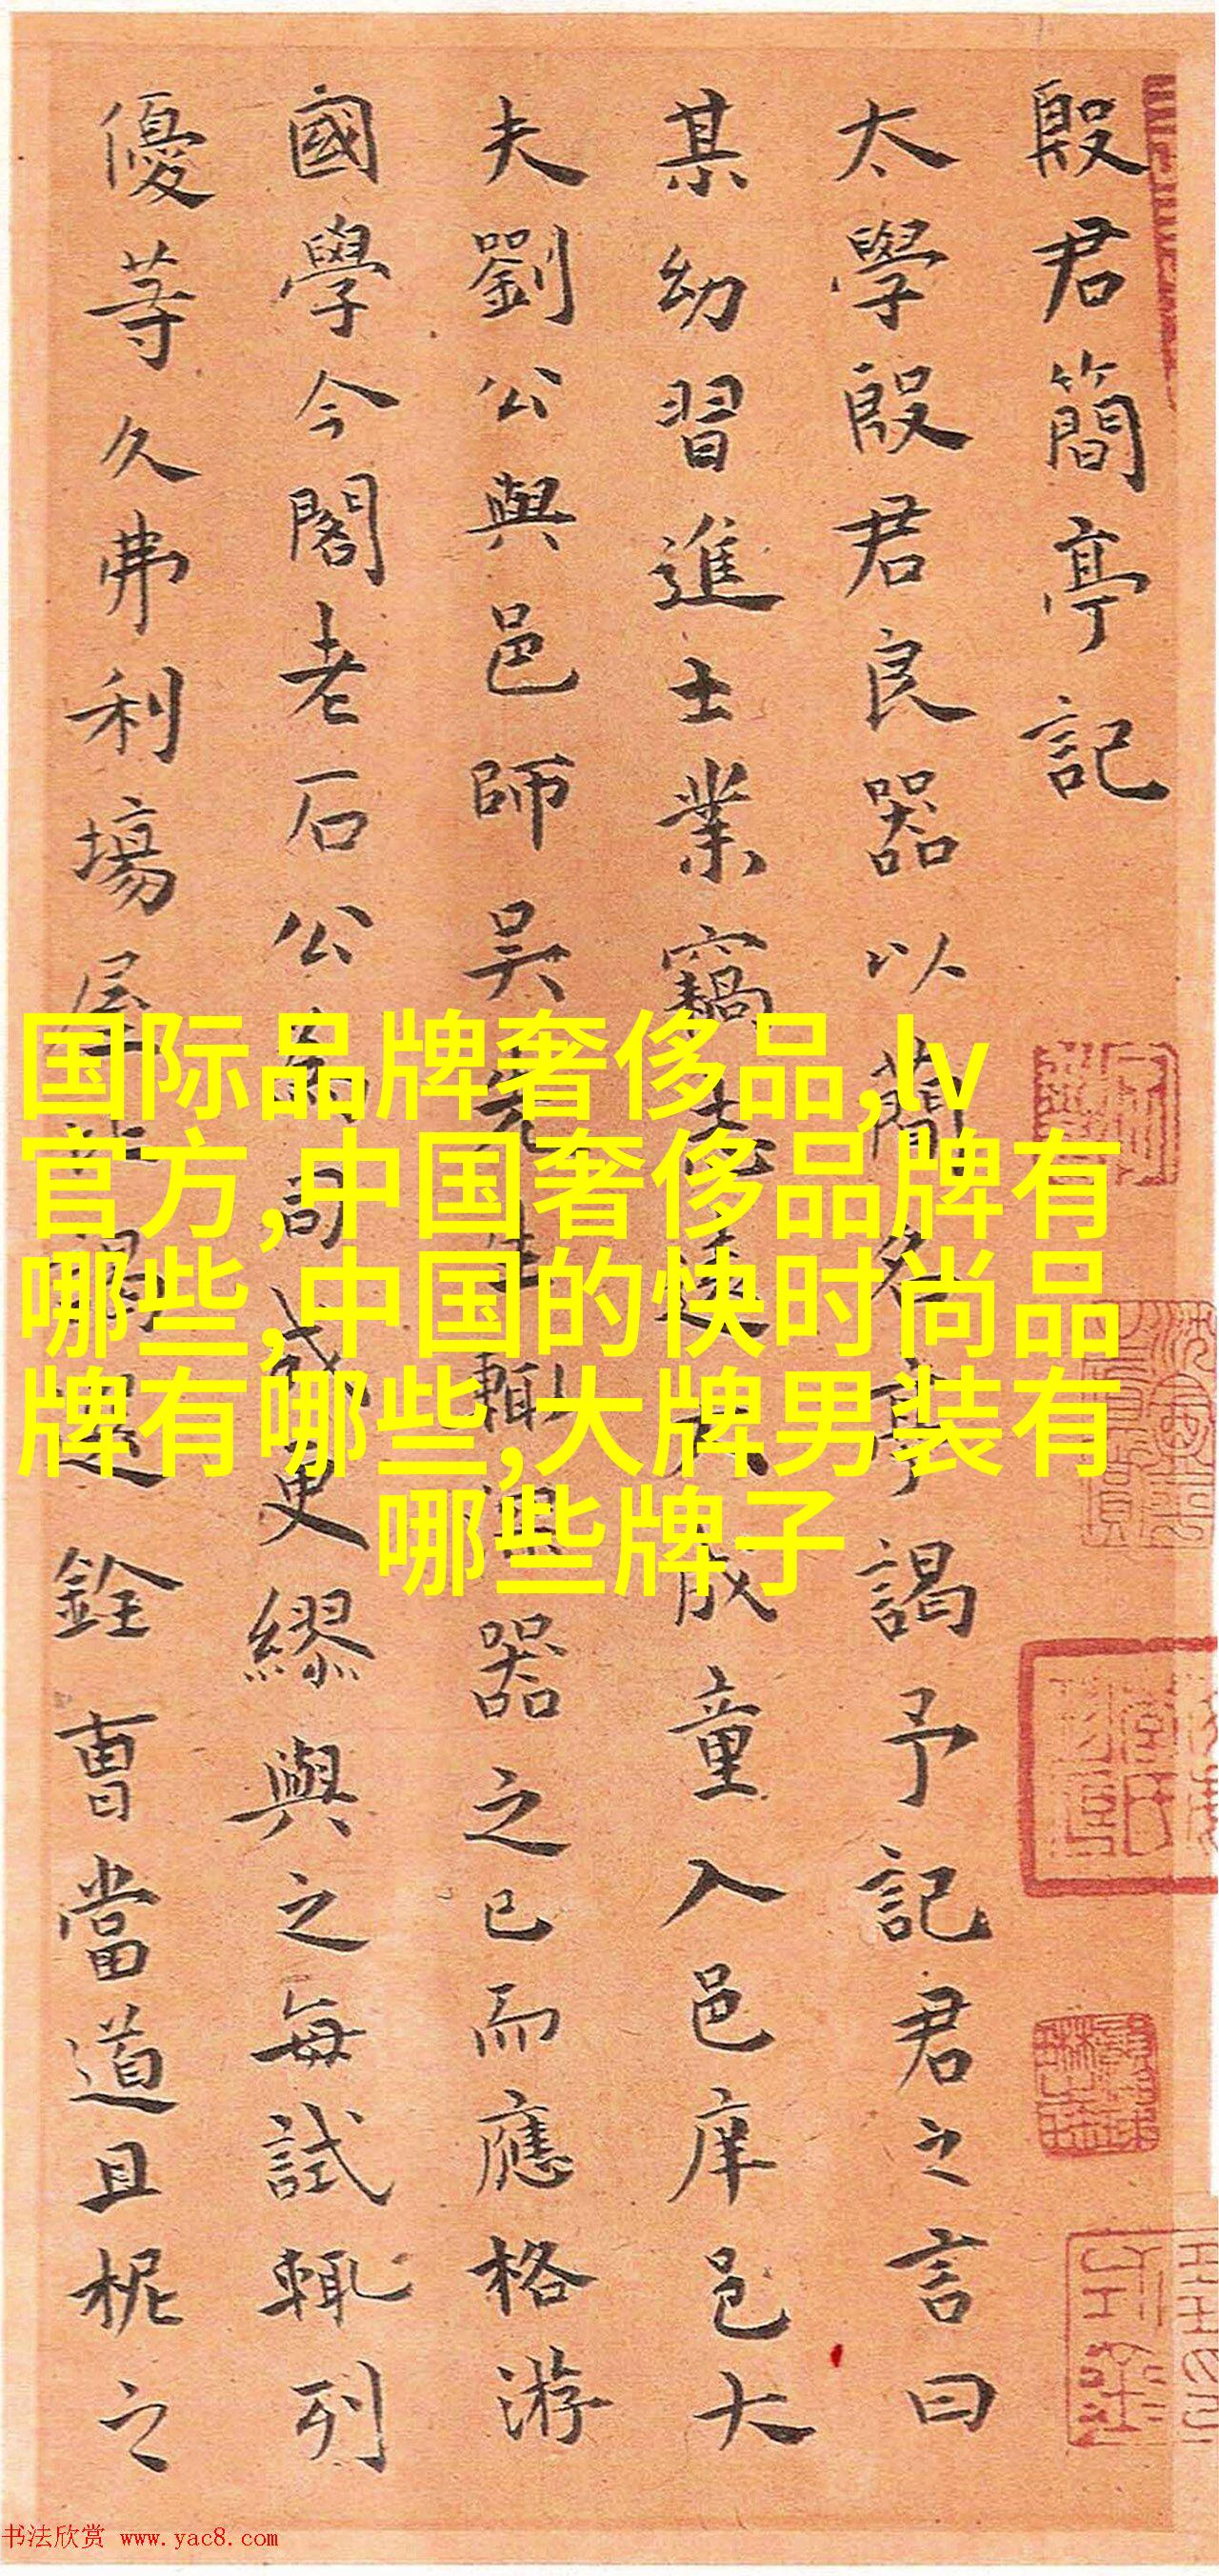 殷君簡亭記
太學殷君良器以簡名亭謁予記君之言曰
某幼習進士業竊志遠大成童入邑庠邑大
夫劉公與邑師吳先生輒器之已而應格游
國學今閣老石公為司成更繆與之每試輒列
優等久弗利場屋
銓曹當道且柅之
国际品牌奢侈品,lv
官方,中国奢侈品牌有
哪些,中国的快时尚品
牌有哪些,大牌男装有
哪些牌子
书法欣赏 www.yac8.com